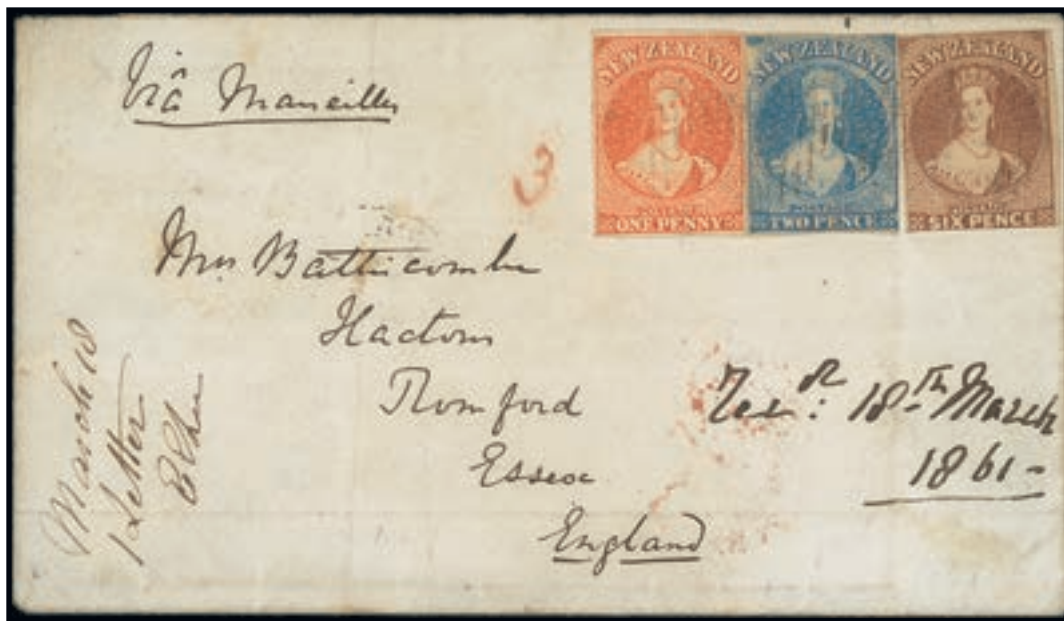 Viâ Marseilles
NEW ZEALAND
POSTAGE
ONE PENNY
NEW ZEALAND
POSTAGE
TWO PENCE
NEW ZEALAND
POSTAGE
SIX PENCE
3
Mrs Batticombe
Hactons
Romford
Essex
England
Recd: 18th March
1861-
March 18
1 Letter